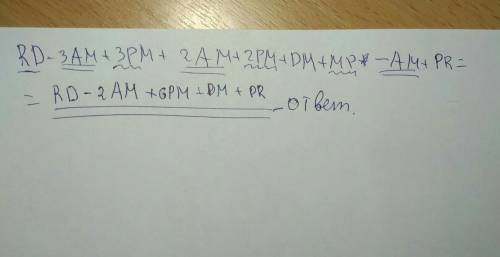 RD - 3AM + 3PM + 2AM + 2PM + DM + MP - AM + PR =
= RD - 2AM + 6PM + DM + PR - ответ.